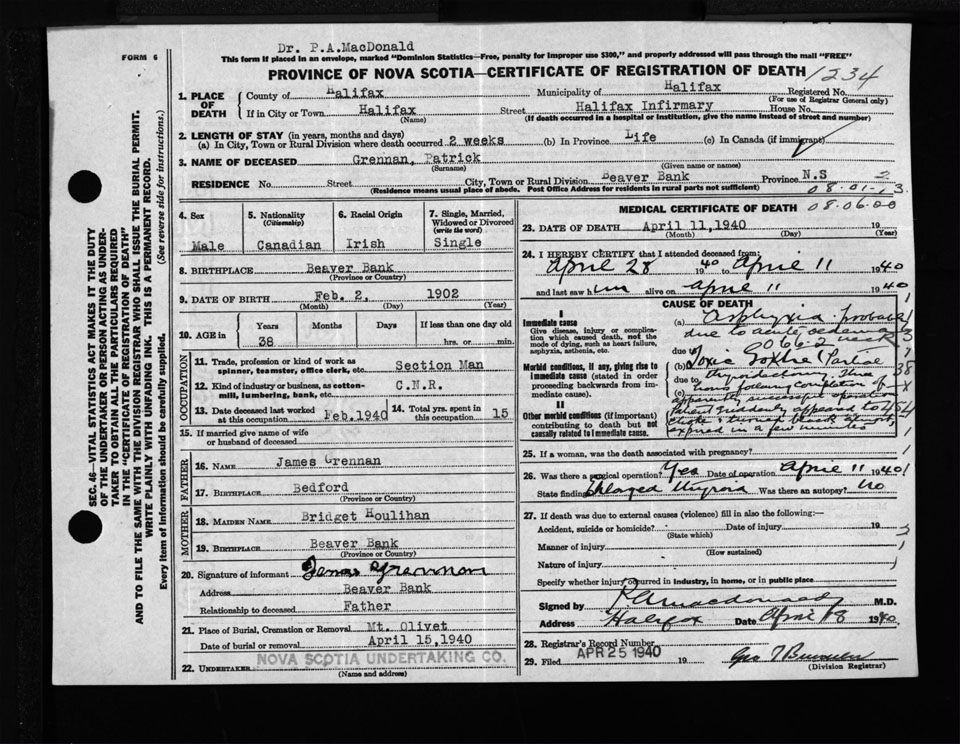 Dr. P.A.MacDonald
FORM 6
This form if placed in an envelope, marked "Dominion Statistics—Free, penalty for improper use $300," and properly addressed will pass through the mail "FREE"
PROVINCE OF NOVA SCOTIA—CERTIFICATE OF REGISTRATION OF DEATH
1234
1. PLACE OF DEATH
County of Halifax Municipality of Halifax Registered No.
(For use of Registrar General only)
If in City or Town Halifax Street Halifax Infirmary House No.
(Name) (If death occurred in a hospital or institution, give the name instead of street and number)
2. LENGTH OF STAY (in years, months and days)
(a) In City, Town or Rural Division where death occurred 2 weeks (b) In Province Life (c) In Canada (if immigrant)
3. NAME OF DECEASED Grennan, Patrick
(Surname) (Given name or names)
RESIDENCE No. Street City, Town or Rural Division Beaver Bank Province N.S
(Residence means usual place of abode. Post Office Address for residents in rural parts not sufficient)
08.06.00
4. Sex
Male
5. Nationality
(Citizenship)
Canadian
6. Racial Origin
Irish
7. Single, Married, Widowed or Divorced
(write the word)
Single
8. BIRTHPLACE Beaver Bank
(Province or Country)
9. DATE OF BIRTH Feb. 2, 1902
(Month) (Day) (Year)
10. AGE in
Years Months Days If less than one day old
38 hrs. or min.
OCCUPATION
11. Trade, profession or kind of work as spinner, teamster, office clerk, etc. Section Man
12. Kind of industry or business, as cotton-mill, lumbering, bank, etc. C.N.R.
13. Date deceased last worked at this occupation Feb.1940
14. Total yrs. spent in this occupation 15
15. If married give name of wife or husband of deceased
FATHER
16. NAME James Grennan
17. BIRTHPLACE Bedford
(Province or Country)
MOTHER
18. MAIDEN NAME Bridget Houlihan
19. BIRTHPLACE Beaver Bank
(Province or Country)
20. Signature of informant James Grennan
Address Beaver Bank
Relationship to deceased Father
21. Place of Burial, Cremation or Removal Mt. Olivet
Date of burial or removal April 15,1940
22. UNDERTAKER NOVA SCOTIA UNDERTAKING CO.
(Name and address)
MEDICAL CERTIFICATE OF DEATH
23. DATE OF DEATH April 11,1940 19
(Month) (Day) (Year)
24. I HEREBY CERTIFY that I attended deceased from:
April 28 1940 to April 11 1940
and last saw him alive on April 11 1940
CAUSE OF DEATH
I
Immediate cause
Give disease, injury or complication which caused death, not the mode of dying, such as heart failure, asphyxia, asthenia, etc.
Morbid conditions, if any, giving rise to immediate cause (stated in order proceeding backwards from immediate).
II
Other morbid conditions (if important) contributing to death but not causally related to immediate cause.
(a) Asphyxia - probably
due to acute oedema
066-2 neck
due to Toxic Goitre (Partial
(b)
due to Thyroidectomy. Three
(c) hours following completion of
apparently successful operation
patient suddenly appeared to
choke & turning black
expired in a few minutes
25. If a woman, was the death associated with pregnancy?
26. Was there a surgical operation? Yes Date of operation April 11 1940
State findings Enlarged thyroid Was there an autopsy? No
27. If death was due to external causes (violence) fill in also the following:—
Accident, suicide or homicide? Date of injury 19
(State which)
Manner of injury
(How sustained)
Nature of injury
Specify whether injury occurred in industry, in home, or in public place
Signed by P A Macdonald M.D.
Address Halifax Date April 18 1940.
28. Registrar's Record Number
29. Filed APR 25 1940 19
(Division Registrar)
SEC. 46—VITAL STATISTICS ACT MAKES IT THE DUTY OF THE UNDERTAKER OR PERSON ACTING AS UNDERTAKER TO OBTAIN ALL THE PARTICULARS REQUIRED IN THE "CERTIFICATE OF REGISTRATION OF DEATH"
AND TO FILE THE SAME WITH THE DIVISION REGISTRAR WHO SHALL ISSUE THE BURIAL PERMIT.
WRITE PLAINLY WITH UNFADING INK. THIS IS A PERMANENT RECORD.
Every item of information should be carefully supplied. (See reverse side for instructions.)